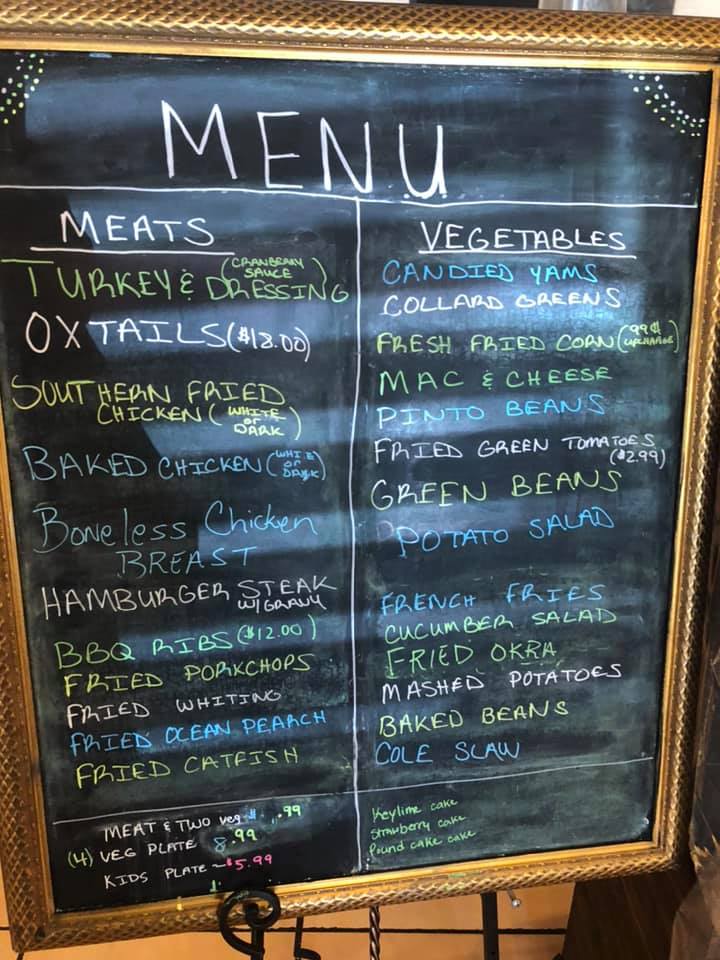 MENU
MEATS
TURKEY & DRESSING (CRANBERRY SAUCE)
OXTAILS ($18.00)
SOUTHERN FRIED
CHICKEN (WHITE or DARK)
BAKED CHICKEN (WHITE or DARK)
Boneless Chicken
BREAST
HAMBURGER STEAK
W/GRAVY
BBQ RIBS ($12.00)
FRIED PORKCHOPS
FRIED WHITING
FRIED OCEAN PEARCH
FRIED CATFISH
VEGETABLES
CANDIED YAMS
COLLARD GREENS
FRESH FRIED CORN (99¢ UPCHARGE)
MAC & CHEESE
PINTO BEANS
FRIED GREEN TOMATOES
($2.99)
GREEN BEANS
POTATO SALAD
FRENCH FRIES
CUCUMBER SALAD
FRIED OKRA
MASHED POTATOES
BAKED BEANS
COLE SLAW
MEAT & TWO veg $ .99
(4) VEG PLATE 8.99
KIDS PLATE ~ $5.99
Keylime cake
Strawberry cake
Pound cake cake